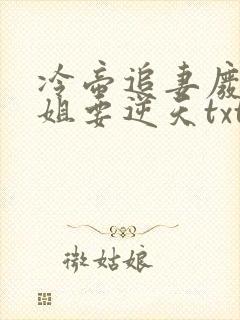 冷帝追妻废
姐要逆天txt
微姑娘